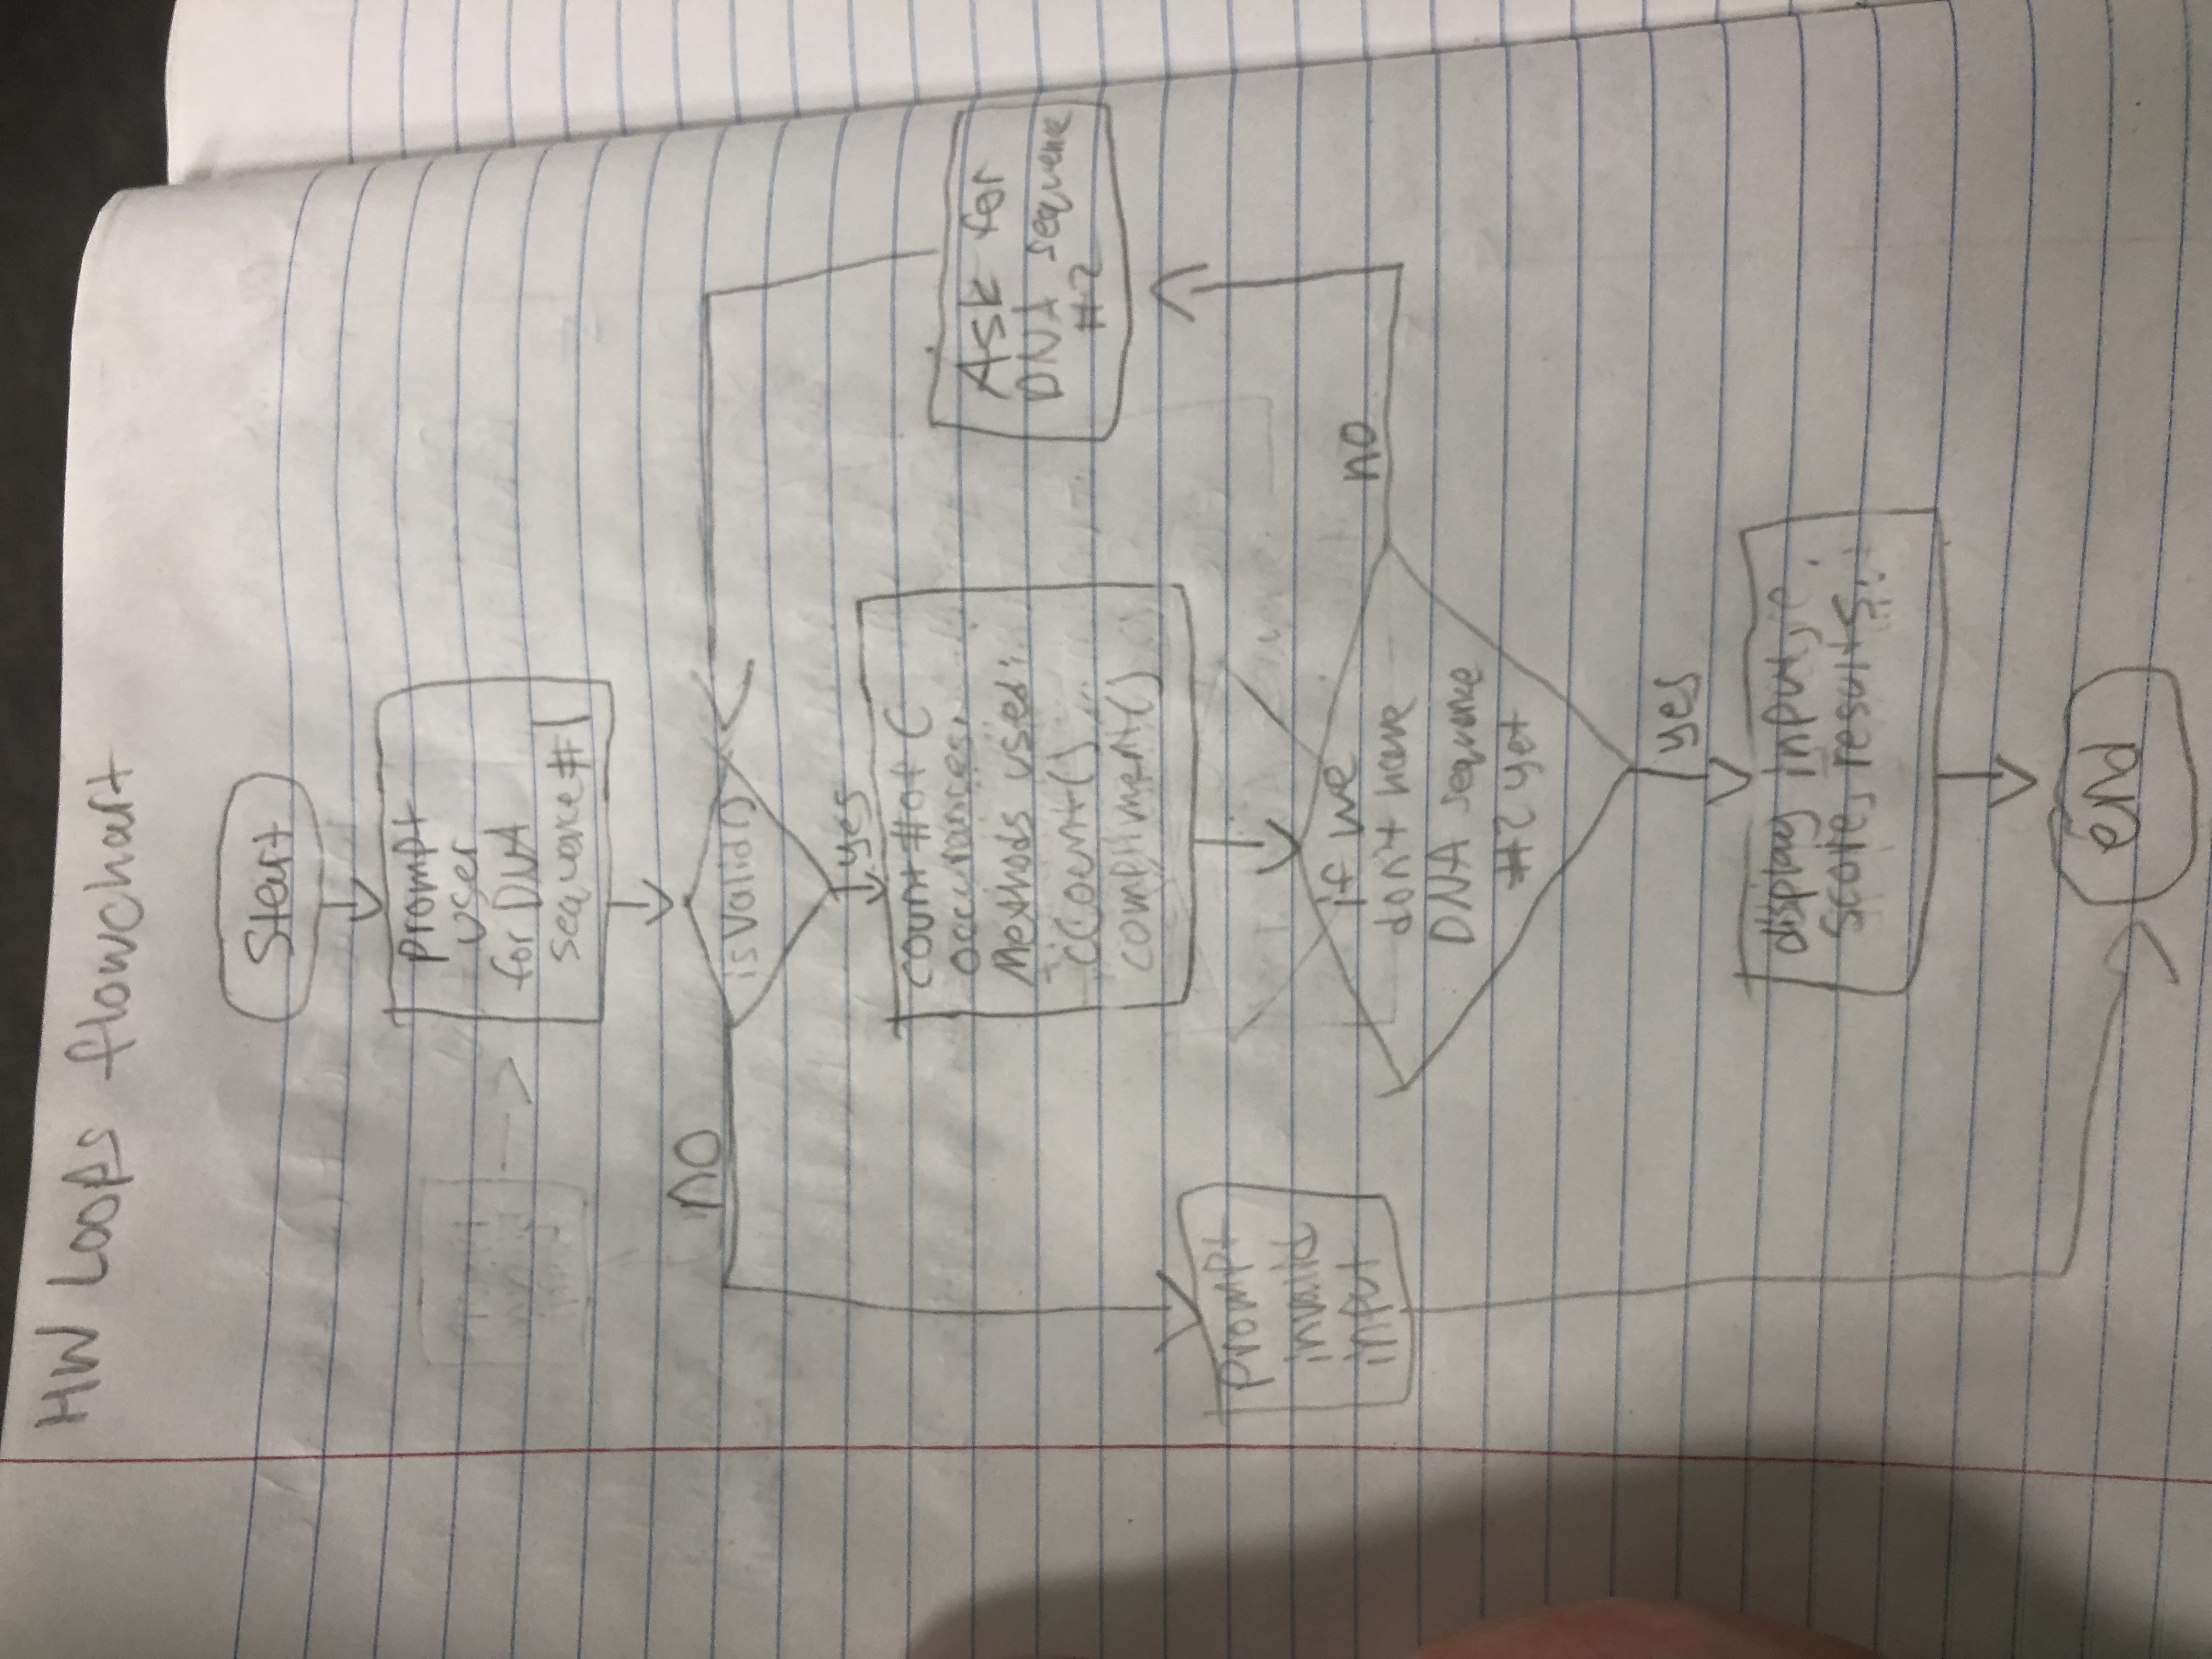 HW Loops flowchart
Start
prompt
user
for DNA
sequence #1
no
isValid()
yes
count # of C
occurances.
Methods used:
cCount()
compliment()
Ask for
DNA sequence
#2
Prompt
invalid
input
if we
don't have
DNA sequence
#2 yet
no
yes
display input,
score, results.
end